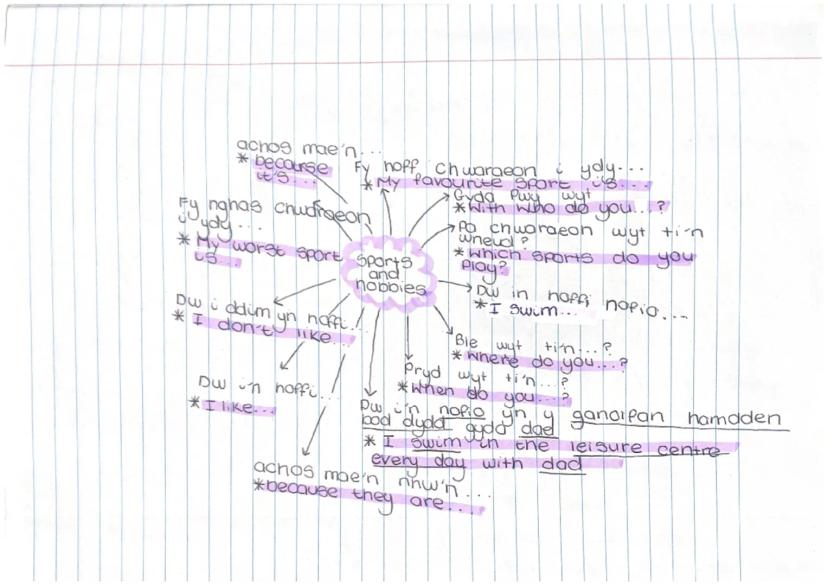 achos mae'n...
* because
it's...
Fy hoff chwaraeon i ydy...
* My favourite sport is...
Gyda Pwy wyt
* With who do you...?
Pa chwaraeon wyt ti'n
wneud?
* which sports do you
play?
Fy nghas chwaraeon
i ydy...
* My worst sport
is...
sports
and
hobbies
Dw in hoffi nofio...
* I swim...
Ble wyt ti'n...?
* Where do you...?
Pryd wyt ti'n...?
* When do you...?
Dw i'n nofio yn y ganolfan hamdden
bod dydd gyda dad
* I swim in the leisure centre
every day with dad
Dw i ddim yn hoffi...
* I don't like...
Dw i'n hoffi...
* I like...
achos mae'n nhw'n...
* because they are...